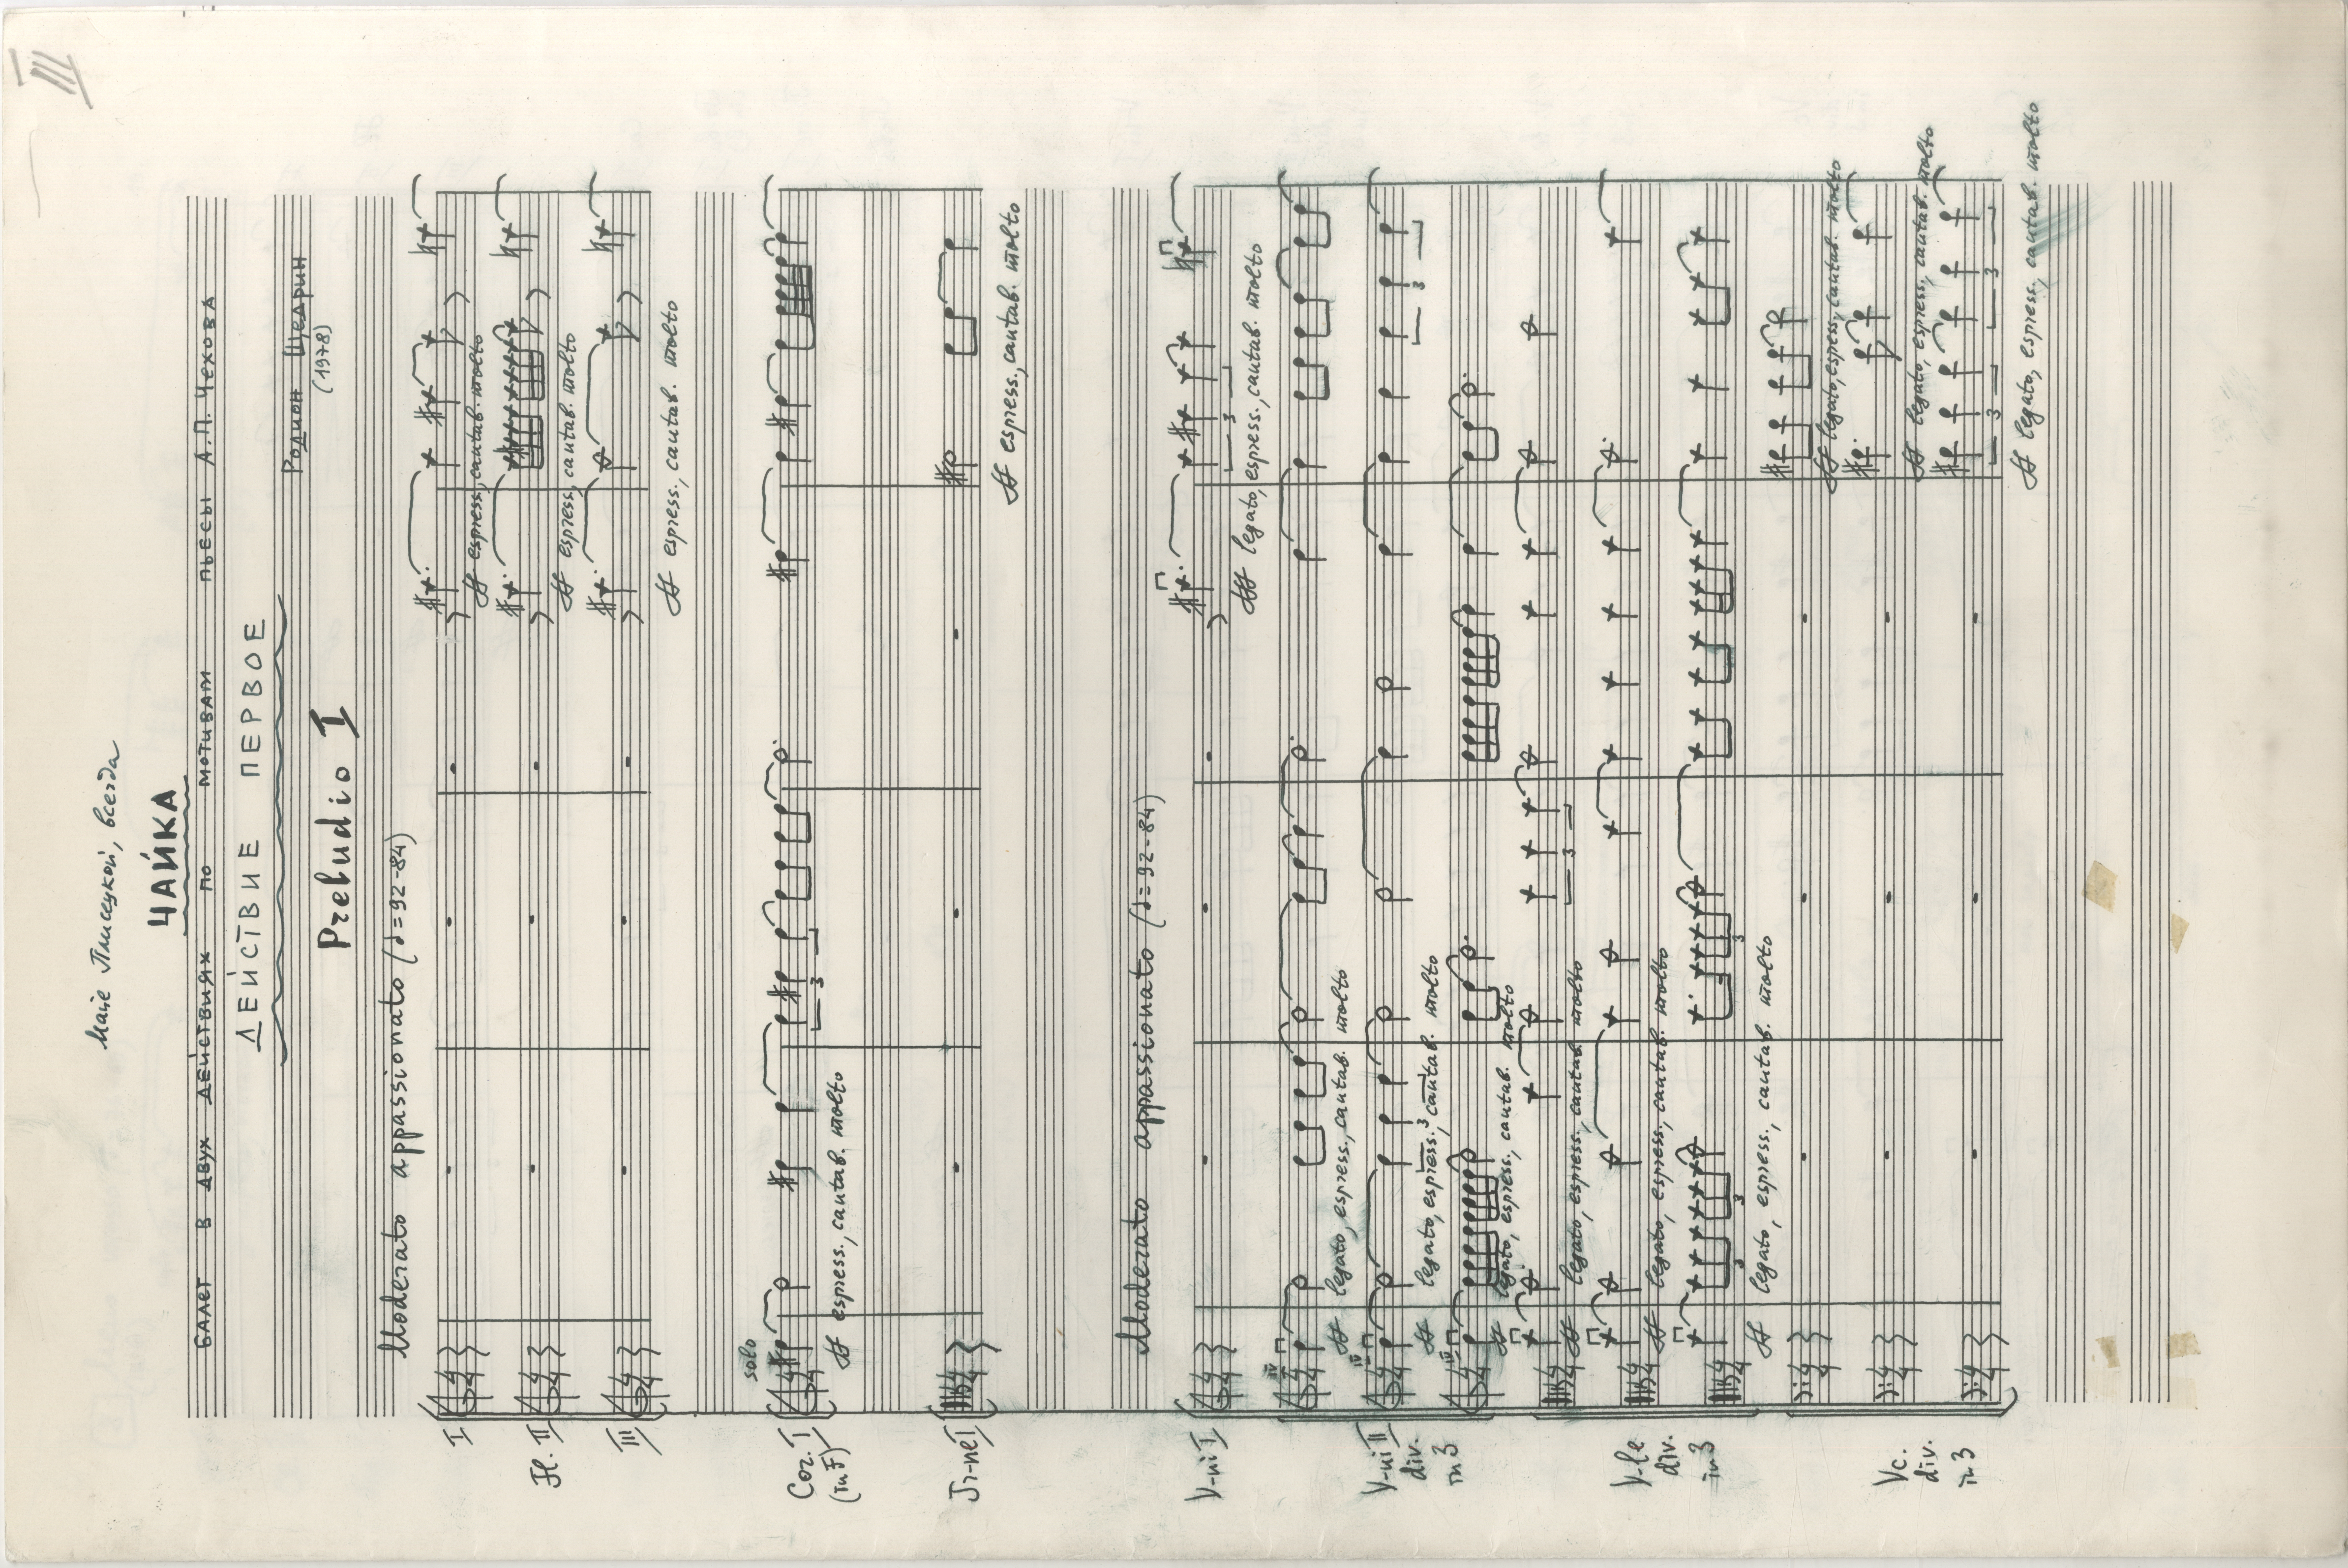 III
Майе Плисецкой, всегда
ЧАЙКА
БАЛЕТ В ДВУХ ДЕЙСТВИЯХ ПО МОТИВАМ ПЬЕСЫ А.П. ЧЕХОВА
ДЕЙСТВИЕ ПЕРВОЕ
Родион Щедрин
(1978)
Preludio I
Moderato appassionato (♩=92-84)
I
ff espress., cantab. molto
Fl. II
ff espress., cantab. molto
III
ff espress., cantab. molto
solo
Cor. I
(in F)
3
ff espress., cantab. molto
Tr-ne I
ff espress., cantab. molto
Moderato appassionato (♩=92-84)
V-ni I
3
fff legato, espress., cantab. molto
IV
ff legato, espress., cantab. molto
V-ni II
div.
in 3
IV
3 3
ff legato, espress., cantab. molto
IV
ff legato, espress., cantab. molto
3
ff legato, espress., cantab. molto
V-le
div.
in 3
ff legato, espress., cantab. molto
3 3 3
ff legato, espress., cantab. molto
ff legato, espress., cantab. molto
Vc.
div.
in 3
ff legato, espress., cantab. molto
3 3
ff legato, espress., cantab. molto